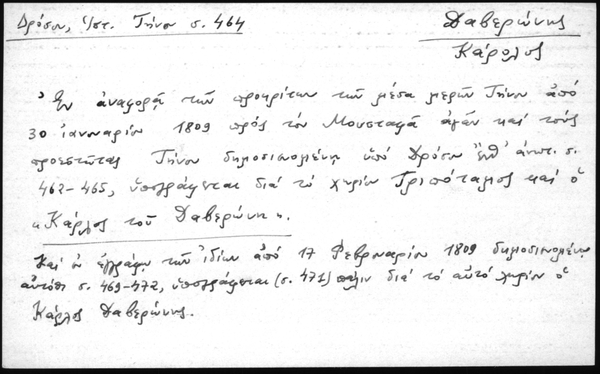 Δρόσου, Ἱστ. Τήνου σ. 464
Δαβερώνης
Κάρολος
Ἐν ἀναφορᾷ τῶν προκρίτων τῶν μέσα μερῶν Τήνου ἀπό
30 ἰανουαρίου 1809 πρός τόν Μουσταφᾶ ἀγᾶν καί τούς
προεστῶτας Τήνου δημοσιευομένῃ ὑπό Δρόσου ἔνθ' ἀνωτ. σ.
462-465, ὑπογράφεται διά τό χωρίον Τριπόταμος καί ὁ
"Κάρλος τοῦ Δαβερώνη".
Καί ἐν ἐγγράφῳ τῶν ἰδίων ἀπό 17 Φεβρουαρίου 1809 δημοσιευομένῳ
αὐτόθι σ. 469-472, ὑπογράφεται (σ. 471) πάλιν διά τό αὐτό χωρίον ὁ
Κάρλος Δαβερώνης.